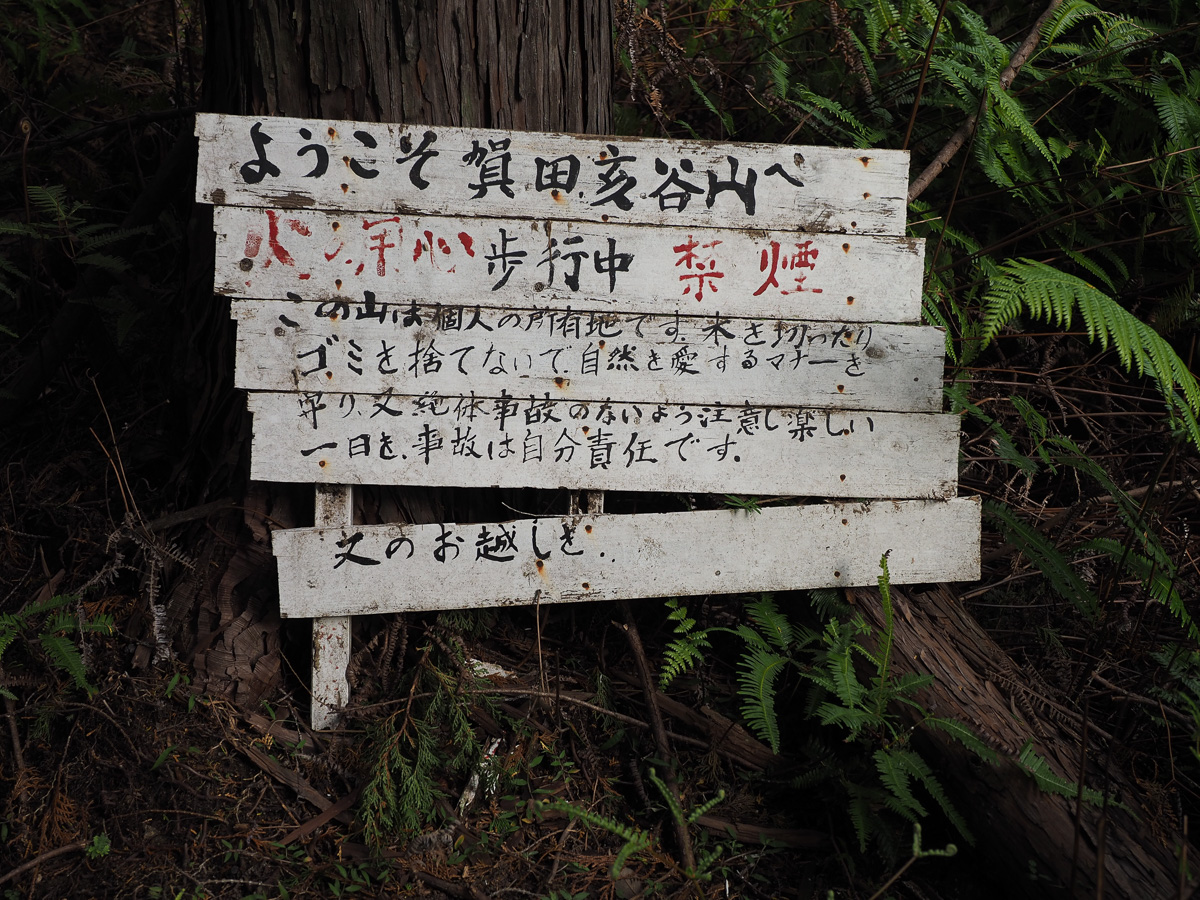 ようこそ賀田亥谷山へ
火の用心 歩行中 禁煙
この山は個人の所有地です。木を切ったり
ゴミを捨てないで、自然を愛するマナーを
守り、又絶体事故のないよう注意し楽しい
一日を、事故は自分責任です。
又のお越しを.